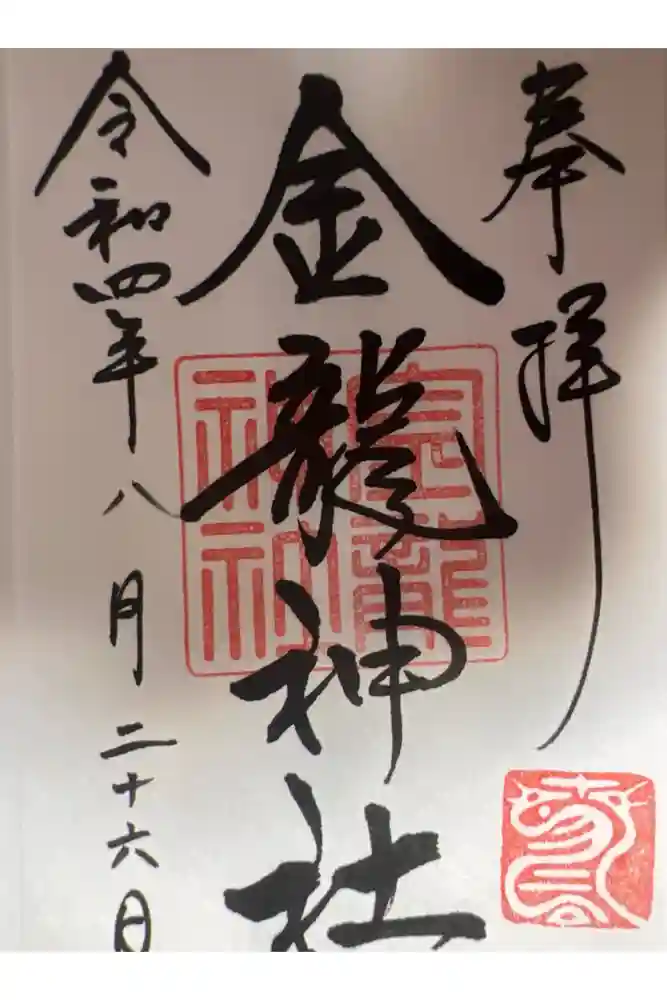 奉拝
金龍神社
令和四年八月二十六日
金龍神社